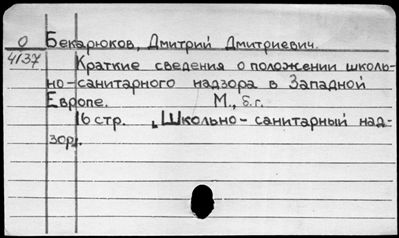 О Бекарюков, Дмитрий Дмитриевич.
4137
Краткие сведения о положении школь-
но-санитарного надзора в Западной
Европе. М., б.г.
16 стр. Школьно-санитарный над-
зор.